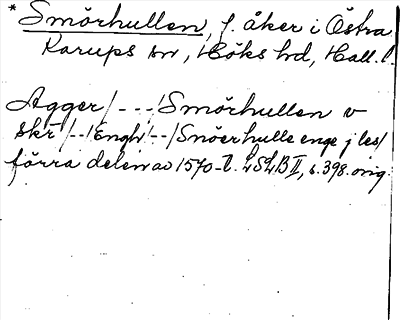 * Smörhullen, f. åker i Östra
Karups sn, Höks hd, Hall. l.
Agger/---/Smörhullen v
skr/--/Engh/--/Smöerhulls enge j les/
förra delen av 1570-t. LSLB II, s. 398. orig.